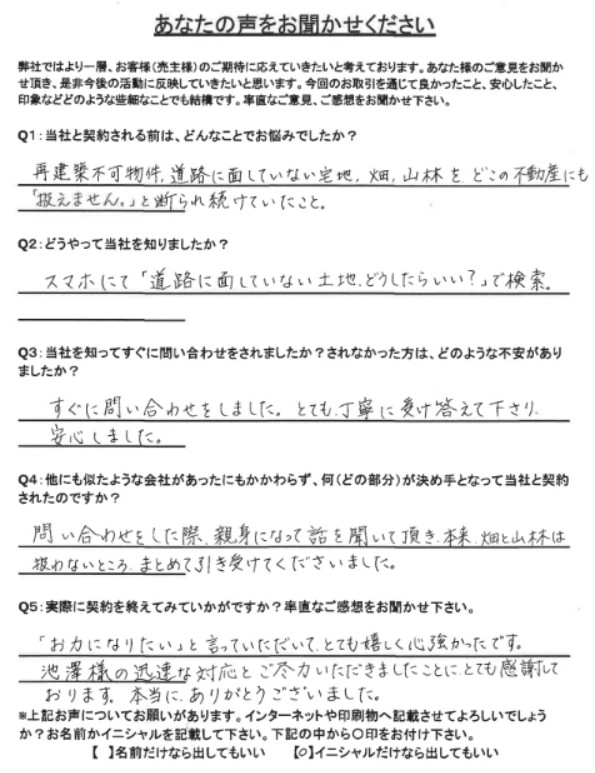 あなたの声をお聞かせください
弊社ではより一層、お客様(売主様)のご期待に応えていきたいと考えております。あなた様のご意見をお聞か
せ頂き、是非今後の活動に反映していきたいと思います。今回のお取引を通じて良かったこと、安心したこと、
印象などどのような些細なことでも結構です。率直なご意見、ご感想をお聞かせ下さい。
Q1:当社と契約される前は、どんなことでお悩みでしたか?
再建築不可物件、道路に面していない宅地、畑、山林を、どこの不動産にも
「扱えません。」と断られ続けていたこと。
Q2:どうやって当社を知りましたか?
スマホにて「道路に面していない土地、どうしたらいい?」で検索。
Q3:当社を知ってすぐに問い合わせをされましたか?されなかった方は、どのような不安があり
ましたか?
すぐに問い合わせをしました。とても、丁寧に受け答えて下さり、
安心しました。
Q4:他にも似たような会社があったにもかかわらず、何(どの部分)が決め手となって当社と契約
されたのですか?
問い合わせをした際、親身になって話を聞いて頂き、本来、畑と山林は
扱わないところ、まとめて引き受けてくださいました。
Q5:実際に契約を終えてみていかがですか?率直なご感想をお聞かせ下さい。
「お力になりたい」と言っていただいて、とても嬉しく心強かったです。
池澤様の迅速な対応とご尽力いただきましたことに、とても感謝して
おります。本当に、ありがとうございました。
※上記お声についてお願いがあります。インターネットや印刷物へ記載させてよろしいでしょう
か?お名前かイニシャルを記載して下さい。下記の中から〇印をお付け下さい。
【 】名前だけなら出してもいい 【〇】イニシャルだけなら出してもいい